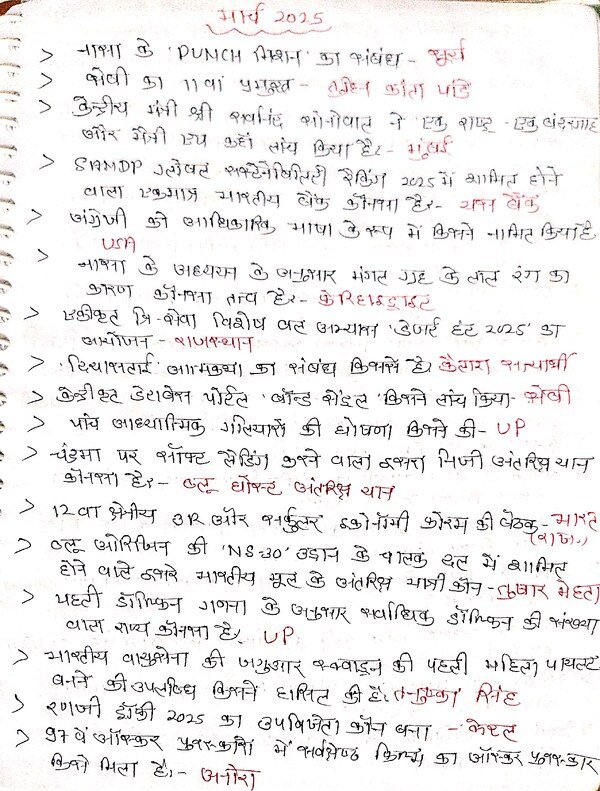 मार्च 2025
> नासा के 'PUNCH मिशन' का संबंध - सूर्य
> सेबी का 11वां प्रमुख - तुहिन कांता पांडे
> केन्द्रीय मंत्री श्री सर्बानंद सोनोवाल ने एक राष्ट्र-एक बंदरगाह
और मैत्री एप कहाँ लांच किया है:- मुंबई
> S&MDP ग्लोबल सस्टेनेबिलिटी रैंकिंग 2025 में शामिल होने
वाला एकमात्र भारतीय बैंक कौनसा है:- यस बैंक
> अंग्रेजी को आधिकारिक भाषा के रूप में किसने नामित किया है
USA
> नासा के अध्ययन के अनुसार मंगल ग्रह के लाल रंग का
कारण कौनसा तत्व है:-
> एकीकृत त्रि-सेवा विशेष बल अभ्यास 'डेजर्ट हंट 2025' का
आयोजन - राजस्थान
> 'दियासलाई' आत्मकथा का संबंध किससे है। कैलाश सत्यार्थी
> केन्द्रीकृत डेटाबेस पोर्टल 'बॉन्ड सेंट्रल' किसने लांच किया - सेबी
> पांच आध्यात्मिक गलियारों की घोषणा किसने की - UP
> चंद्रमा पर सॉफ्ट लैंडिंग करने वाला दूसरा निजी अंतरिक्ष यान
कौनसा है:- ब्लू घोस्ट अंतरिक्ष यान
> 12वां क्षेत्रीय 3R और सर्कुलर इकोनॉमी फोरम की बैठक - भारत
> ब्लू ओरिजिन की 'NS-30' उड़ान के चालक दल में शामिल
होने वाले दूसरे भारतीय मूल के अंतरिक्ष यात्री कौन - तुषार मेहता
> पहली डॉल्फिन गणना के अनुसार सर्वाधिक डॉल्फिन की संख्या
वाला राज्य कौनसा है। UP
> भारतीय वायुसेना की जगुआर स्क्वाड्रन की पहली महिला पायलट
बनने की उपलब्धि किसने हासिल की है। तनुष्का सिंह
> रणजी ट्रॉफी 2025 का उपविजेता कौन बना - केरल
> 97 वें ऑस्कर पुरस्कारों में सर्वश्रेष्ठ फिल्म का ऑस्कर पुरस्कार
किसे मिला है:- अनोरा